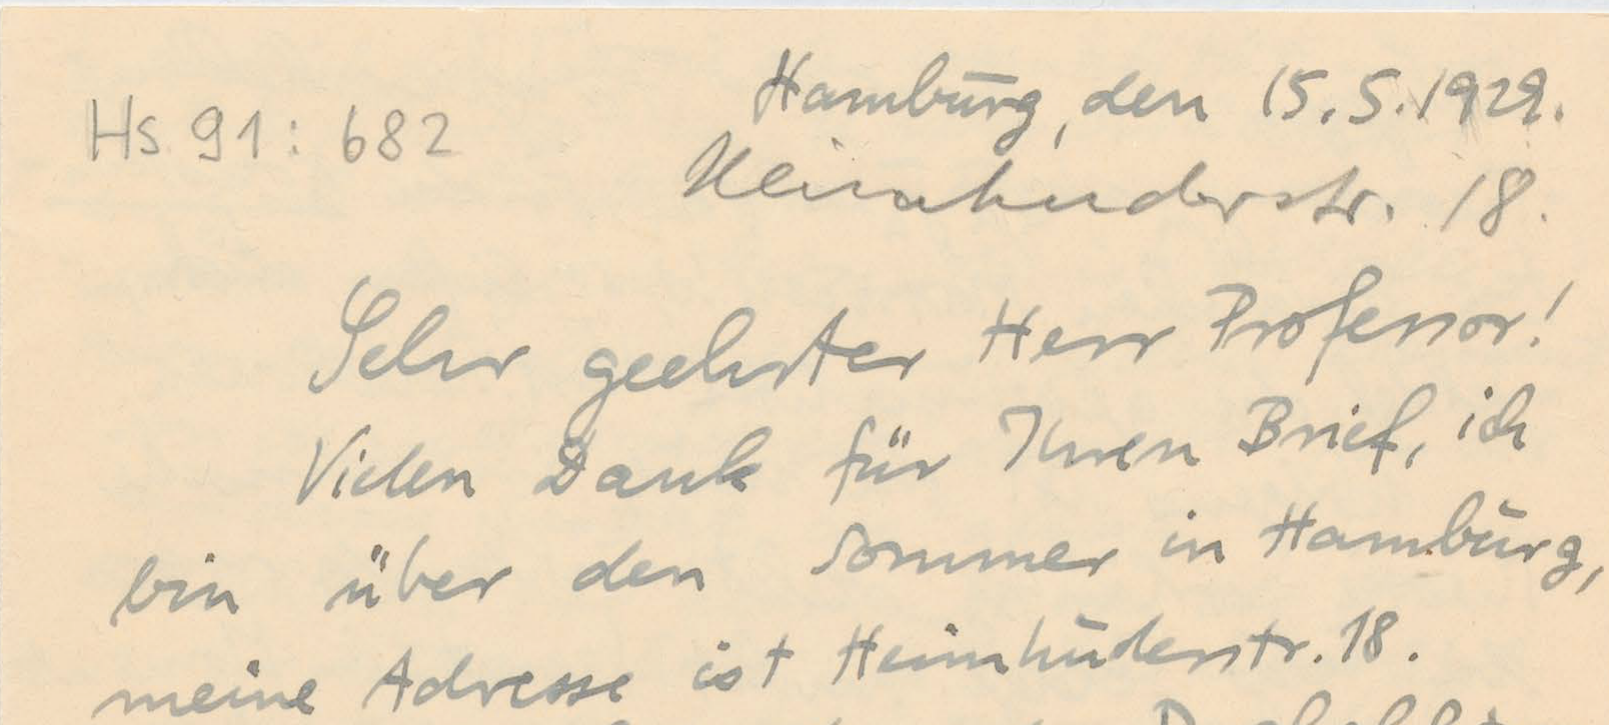 Hs 91: 682
Hamburg, den 15.5.1929.
Heimhuderstr. 18.
Sehr geehrter Herr Professor!
Vielen Dank für Ihren Brief, ich
bin über den Sommer in Hamburg,
meine Adresse ist Heimhuderstr. 18.